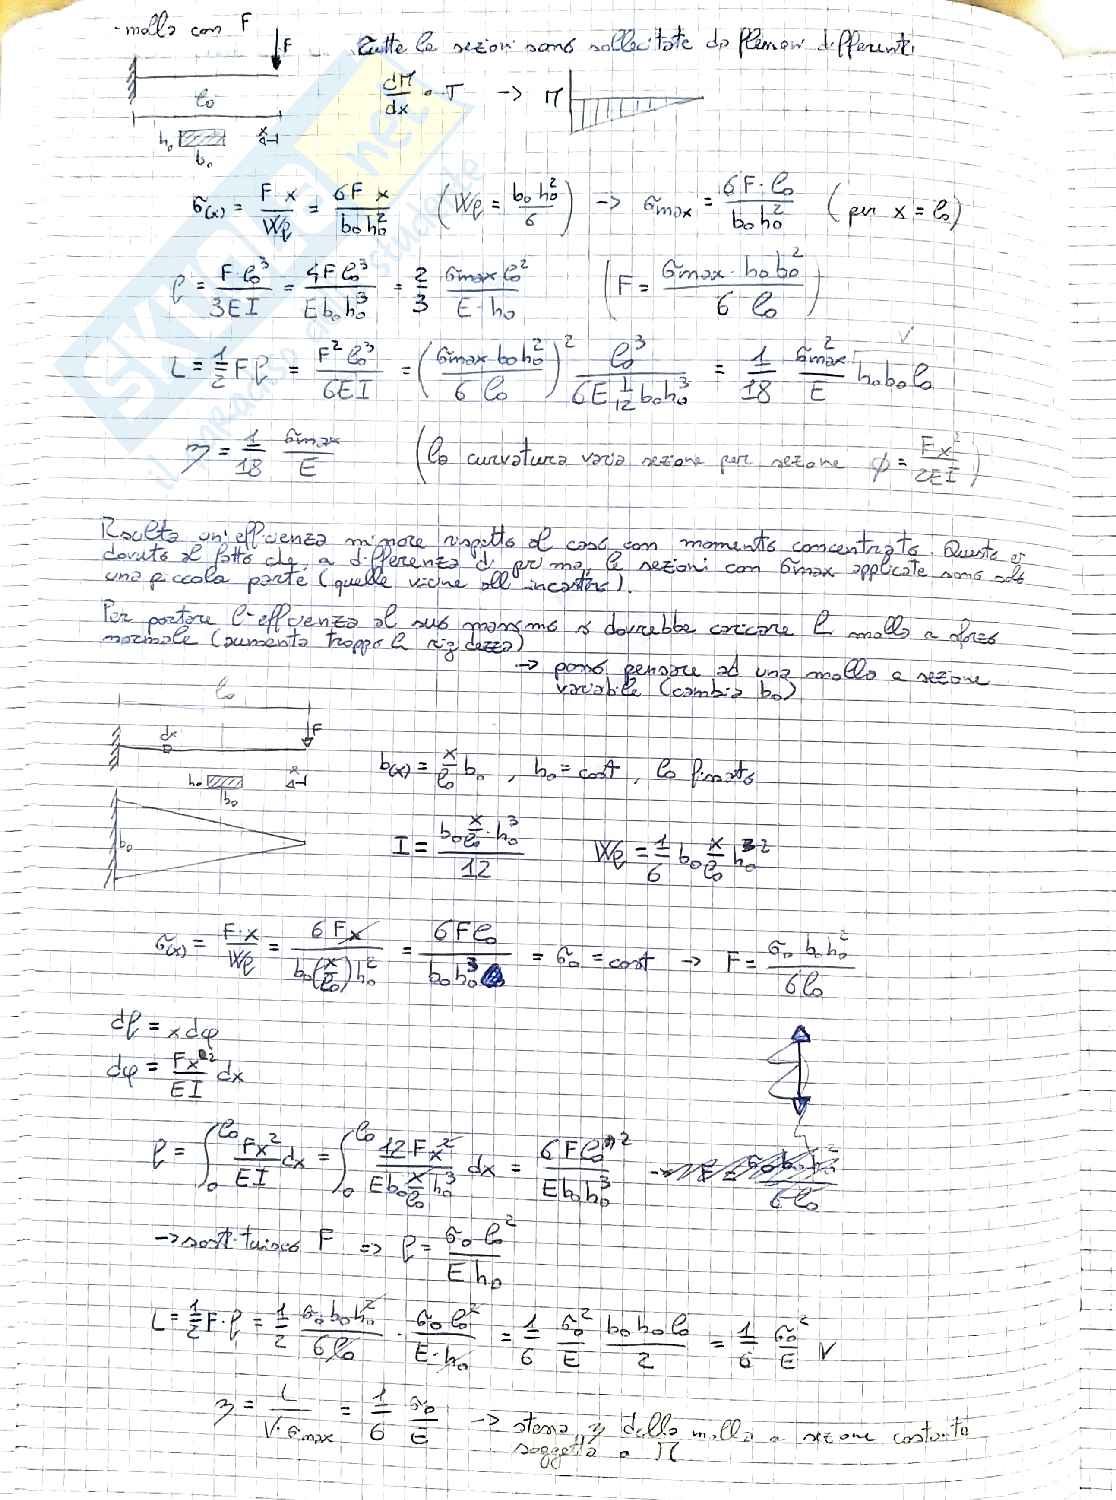 - molla con F
F
Tutte le sezioni sono sollecitate da flessioni differenti
l₀
h₀ b₀ x
dM/dx = T → M
σ(x) = F x / Wf = 6F x / b₀h₀² (Wf = b₀h₀²/6) → σmax = 6F·l₀ / b₀h₀² (per x = l₀)
f = F l₀³ / 3EI = 4F l₀³ / E b₀h₀³ = 2/3 σmax l₀² / E·h₀ (F = σmax·b₀h₀² / 6 l₀)
L = 1/2 F f = F² l₀³ / 6EI = (σmax b₀h₀² / 6 l₀)² l₀³ / 6E 1/12 b₀h₀³ = 1/18 σmax²/E h₀b₀l₀
V
η = 1/18 σmax/E (la curvatura varia sezione per sezione φ = Fx²/2EI)
Risulta un'efficienza minore rispetto al caso con momento concentrato. Questo è
dovuto al fatto che, a differenza di prima, le sezioni con σmax applicate sono solo
una piccola parte (quelle vicine all'incastro).
Per portare l'efficienza al suo massimo si dovrebbe caricare la molla a forza
normale (aumenta troppo la rigidezza)
→ posso pensare ad una molla a sezione
variabile (cambia b₀)
l₀
dx F
h₀ b₀ x
b₀
b(x) = x/l₀ b₀ , h₀ = cost , l₀ fissato
I = b₀ x/l₀ · h₀³ / 12 Wf = 1/6 b₀ x/l₀ h₀²
σ(x) = F·x / Wf = 6 F x / b₀(x/l₀)h₀² = 6 F l₀ / b₀h₀³ = σ₀ = cost → F = σ₀ b₀h₀² / 6l₀
df = x dφ
dφ = Fx² / EI dx
f = ∫₀^l₀ Fx²/EI dx = ∫₀^l₀ 12 F x² / E b₀ x/l₀ h₀³ dx = 6 F l₀² / E b₀h₀³
6l₀
→ sostituisco F => f = σ₀ l₀² / E h₀
L = 1/2 F·f = 1/2 σ₀ b₀h₀² / 6l₀ · σ₀ l₀² / E·h₀ = 1/6 σ₀²/E b₀h₀l₀ / 2 = 1/6 σ₀²/E V
η = L / V·σmax = 1/6 σ₀/E → stessa η della molla a sezione costante
soggetta a M
SKUOLA.net
il paradiso dello studente